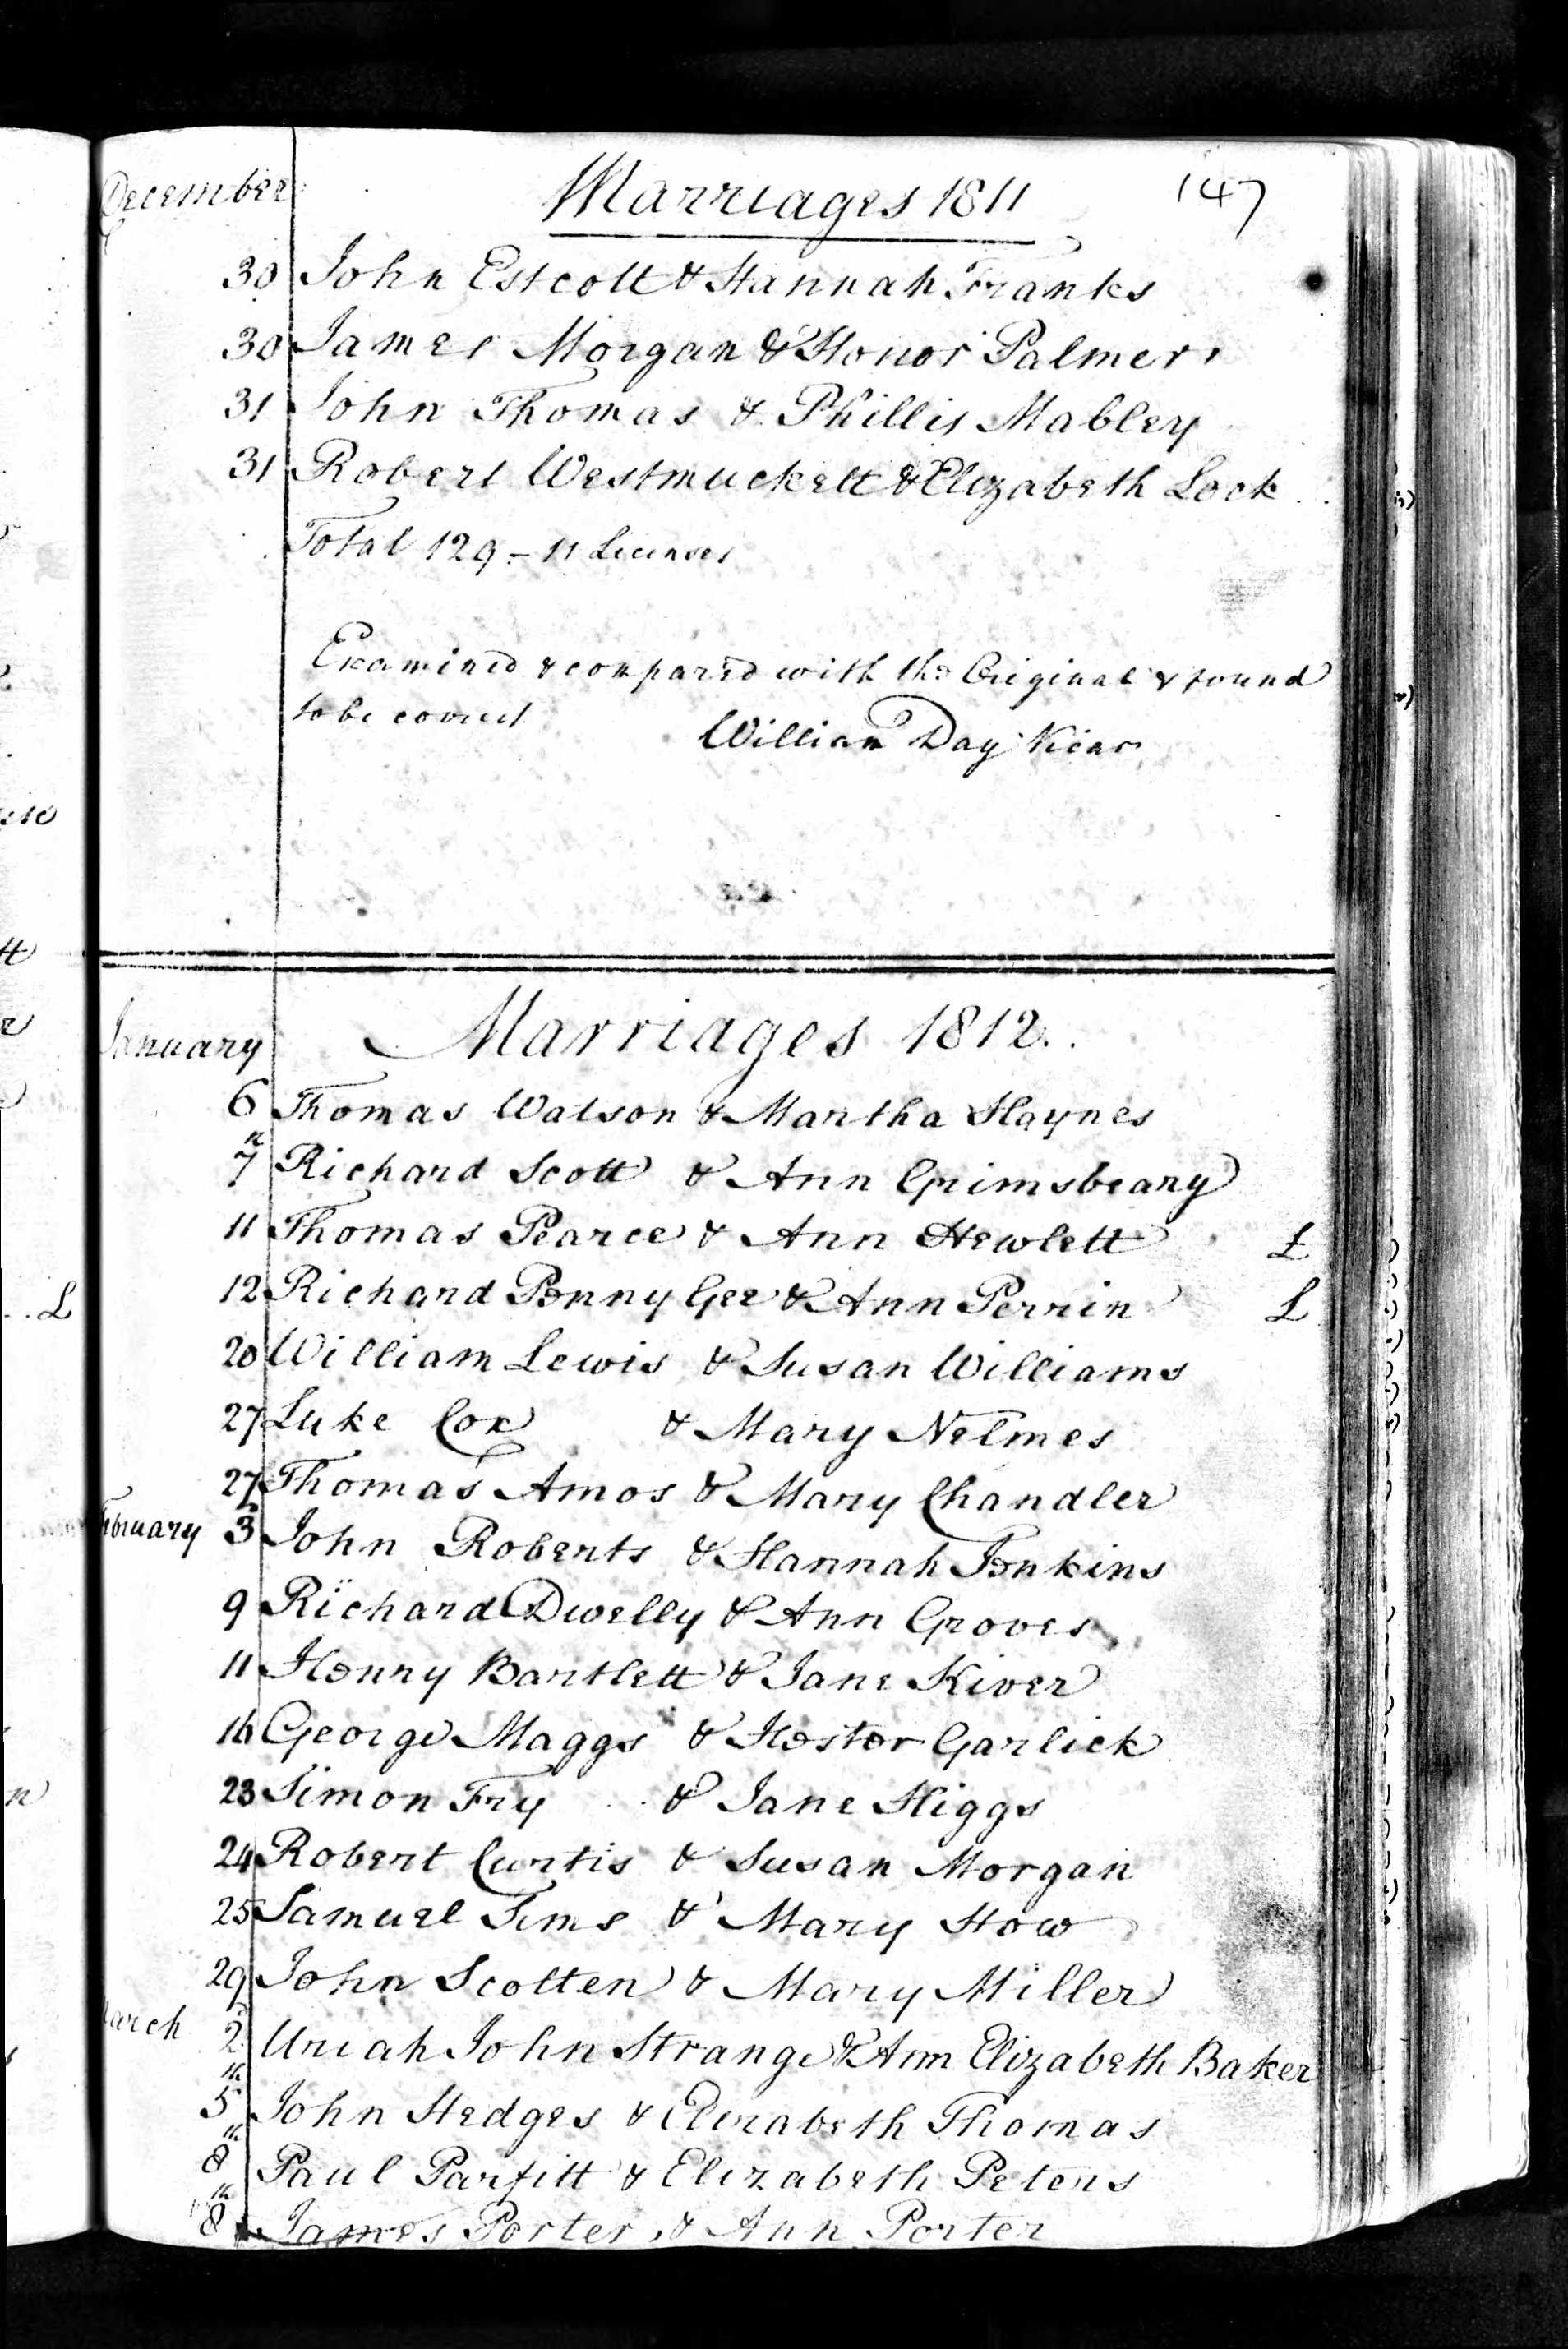 December Marriages 1811 147
30 John Estcott & Hannah Franks
30 James Morgan & Honor Palmer
31 John Thomas & Phillis Mabley
31 Robert Westmuckett & Elizabeth Lock
Total 129 - 11 Licenses
Examined & compared with the Original & found
to be correct
William Day Vicar
January Marriages 1812.
6 Thomas Watson & Martha Haynes
7th Richard Scott & Ann Grimsbeary
11 Thomas Pearce & Ann Hewlett L
12 Richard Penny Gee & Ann Perrin L
20 William Lewis & Susan Williams
27 Luke Cox & Mary Nelmes
27 Thomas Amos & Mary Chandler
February 3 John Roberts & Hannah Jenkins
9 Richard Dwelly & Ann Groves
11 Henry Bartlett & Jane Kiver
16 George Maggs & Hester Garlick
23 Simon Fry & Jane Higgs
24 Robert Curtis & Susan Morgan
25 Samuel Tims & Mary How
29 John Scotten & Mary Miller
March 2 Uriah John Strange & Ann Elizabeth Baker
5th John Hedges & Elizabeth Thomas
8th Paul Parfitt & Elizabeth Peters
8th James Porter & Ann Porter